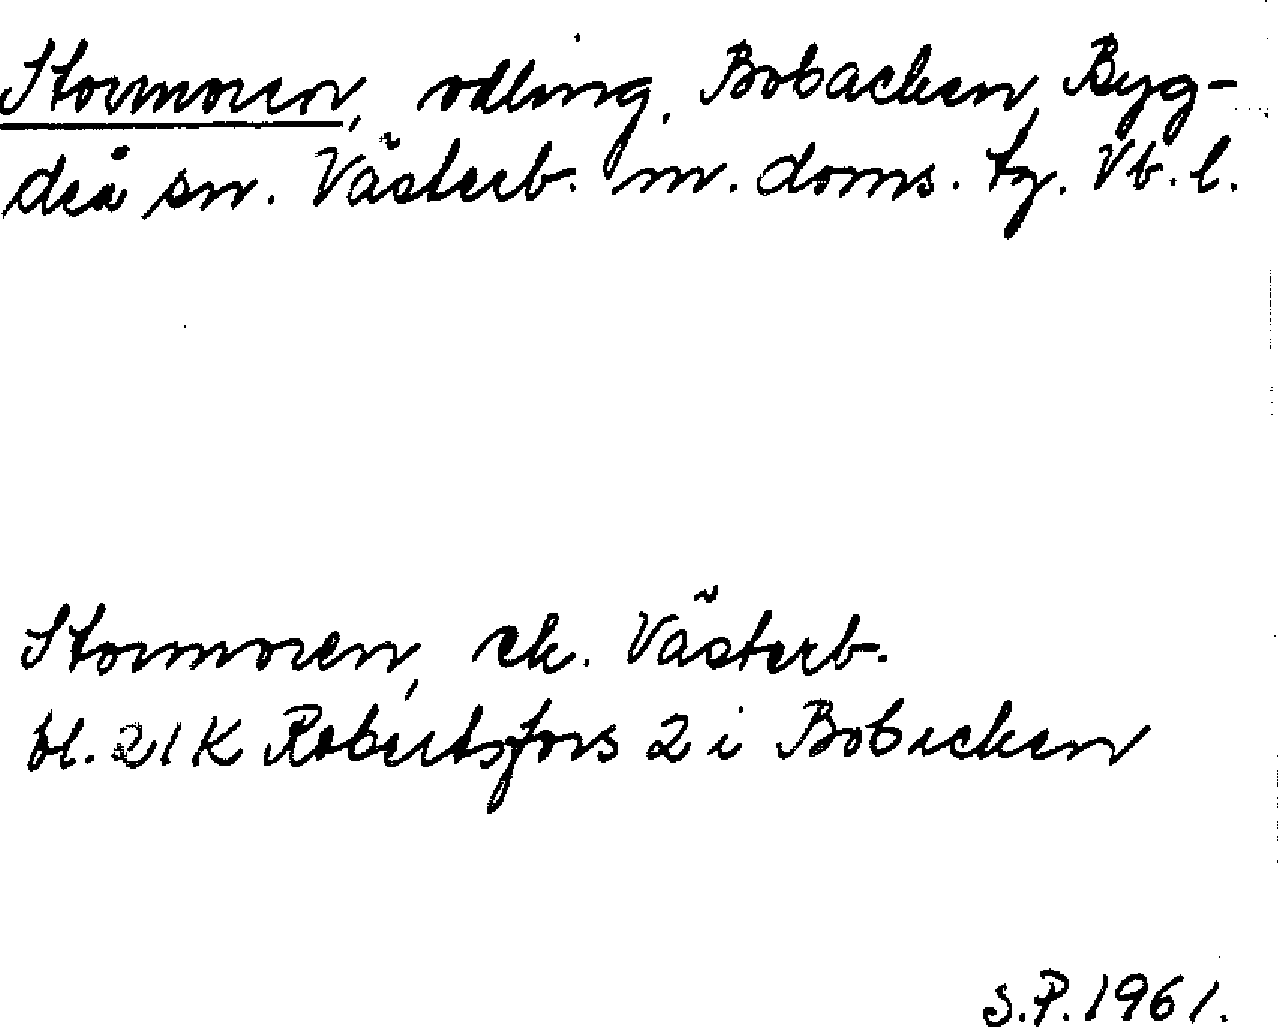 Stormoren, odling, Bobacken, Byg-
deå sn. Västerb. m. doms. tg. Vb. l.
Stormoren, ek. Västerb.
bl. 21K Robertsfors 2 i Bobacken
S.P. 1961.